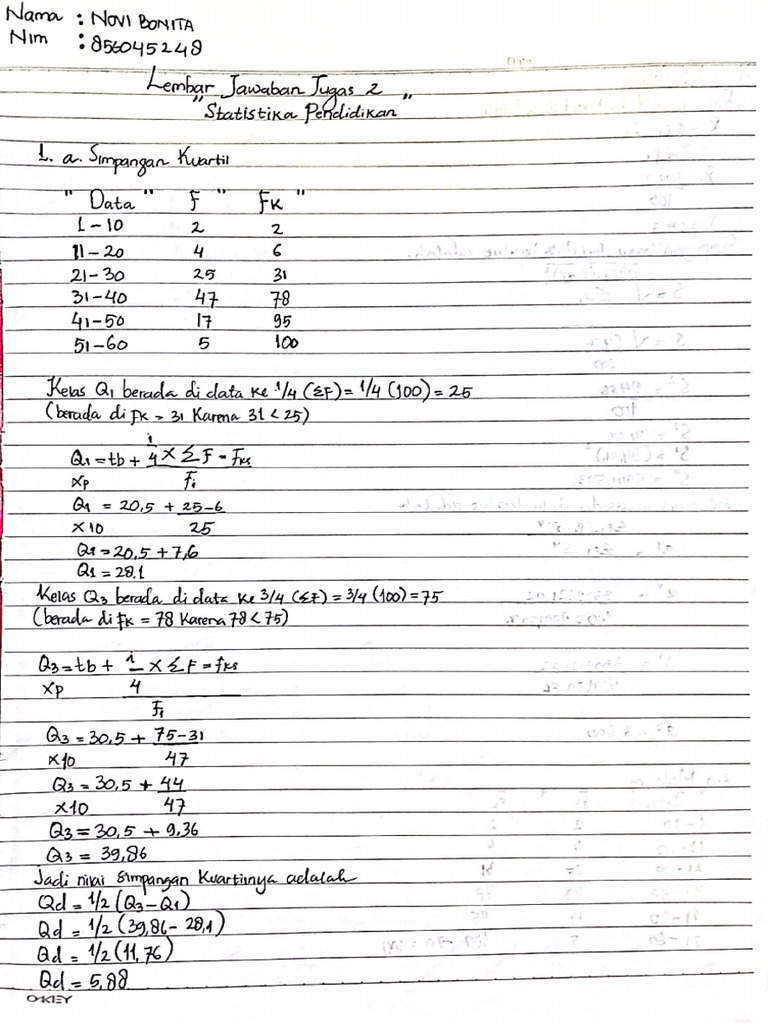 Nama : NOVI BONITA
Nim : 856045248
Lembar Jawaban Tugas 2
"Statistika Pendidikan"
1. a. Simpangan Kuartil
" Data " F " FK "
1-10 2 2
11-20 4 6
21-30 25 31
31-40 47 78
41-50 17 95
51-60 5 100
Kelas Q1 berada di data ke 1/4 (ΣF) = 1/4 (100) = 25
(berada di fk = 31 Karena 31 < 25)
Q1 = tb + i/4 × ΣF - Fks
xp Fi
Q1 = 20,5 + 25-6
×10 25
Q1 = 20,5 + 7,6
Q1 = 28,1
Kelas Q3 berada di data ke 3/4 (ΣF) = 3/4 (100) = 75
(berada di fk = 78 Karena 78 < 75)
Q3 = tb + i × ΣF - fks
xp 4
Fi
Q3 = 30,5 + 75-31
×10 47
Q3 = 30,5 + 44
×10 47
Q3 = 30,5 + 9,36
Q3 = 39,86
Jadi nilai simpangan Kuartilnya adalah
Qd = 1/2 (Q3-Q1)
Qd = 1/2 (39,86 - 28,1)
Qd = 1/2 (11,76)
Qd = 5,88
OKEY